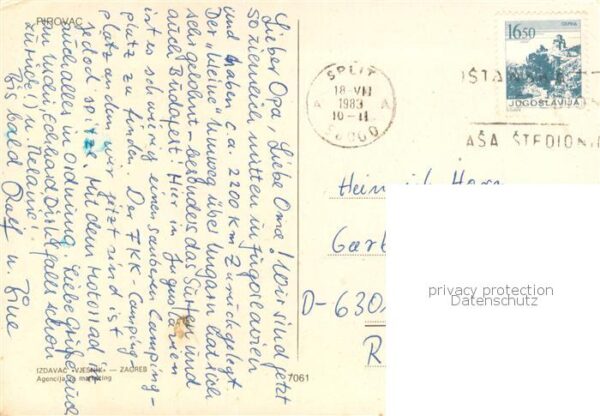 PIROVAC
Lieber Opa, Liebe Oma! Wir sind jetzt
so ziemlich mitten in Jugoslavien
und haben c.a. 2200 km zurückgelegt.
Der "kleine" Umweg über Ungarn hat sich
sehr gelohnt - besonders das Städtchen und
auch Budapest! Hier in Jugoslavien
ist es schwierig einen sauberen Camping-
platz zu finden. Der FKK-Camping-
platz an dem wir jetzt sind ist
jedoch spitze. Mit dem Motorrad ist
auch alles in Ordnung. Liebe Grüße auch
an Eckhard, Dirk (falls schon
zurück!) u. Melanie!
Bis bald Ralf u. Tine
IZDAVAČ »VJESNIK« — ZAGREB
Agencija za marketing
7061
SPLIT
18-VII
1983
10-11
A A
58000
16.50
JUGOSLAVIJA
IŠTA
AŠA ŠTEDIONI
Heinrich
Gart
D-630
R
privacy protection
Datenschutz